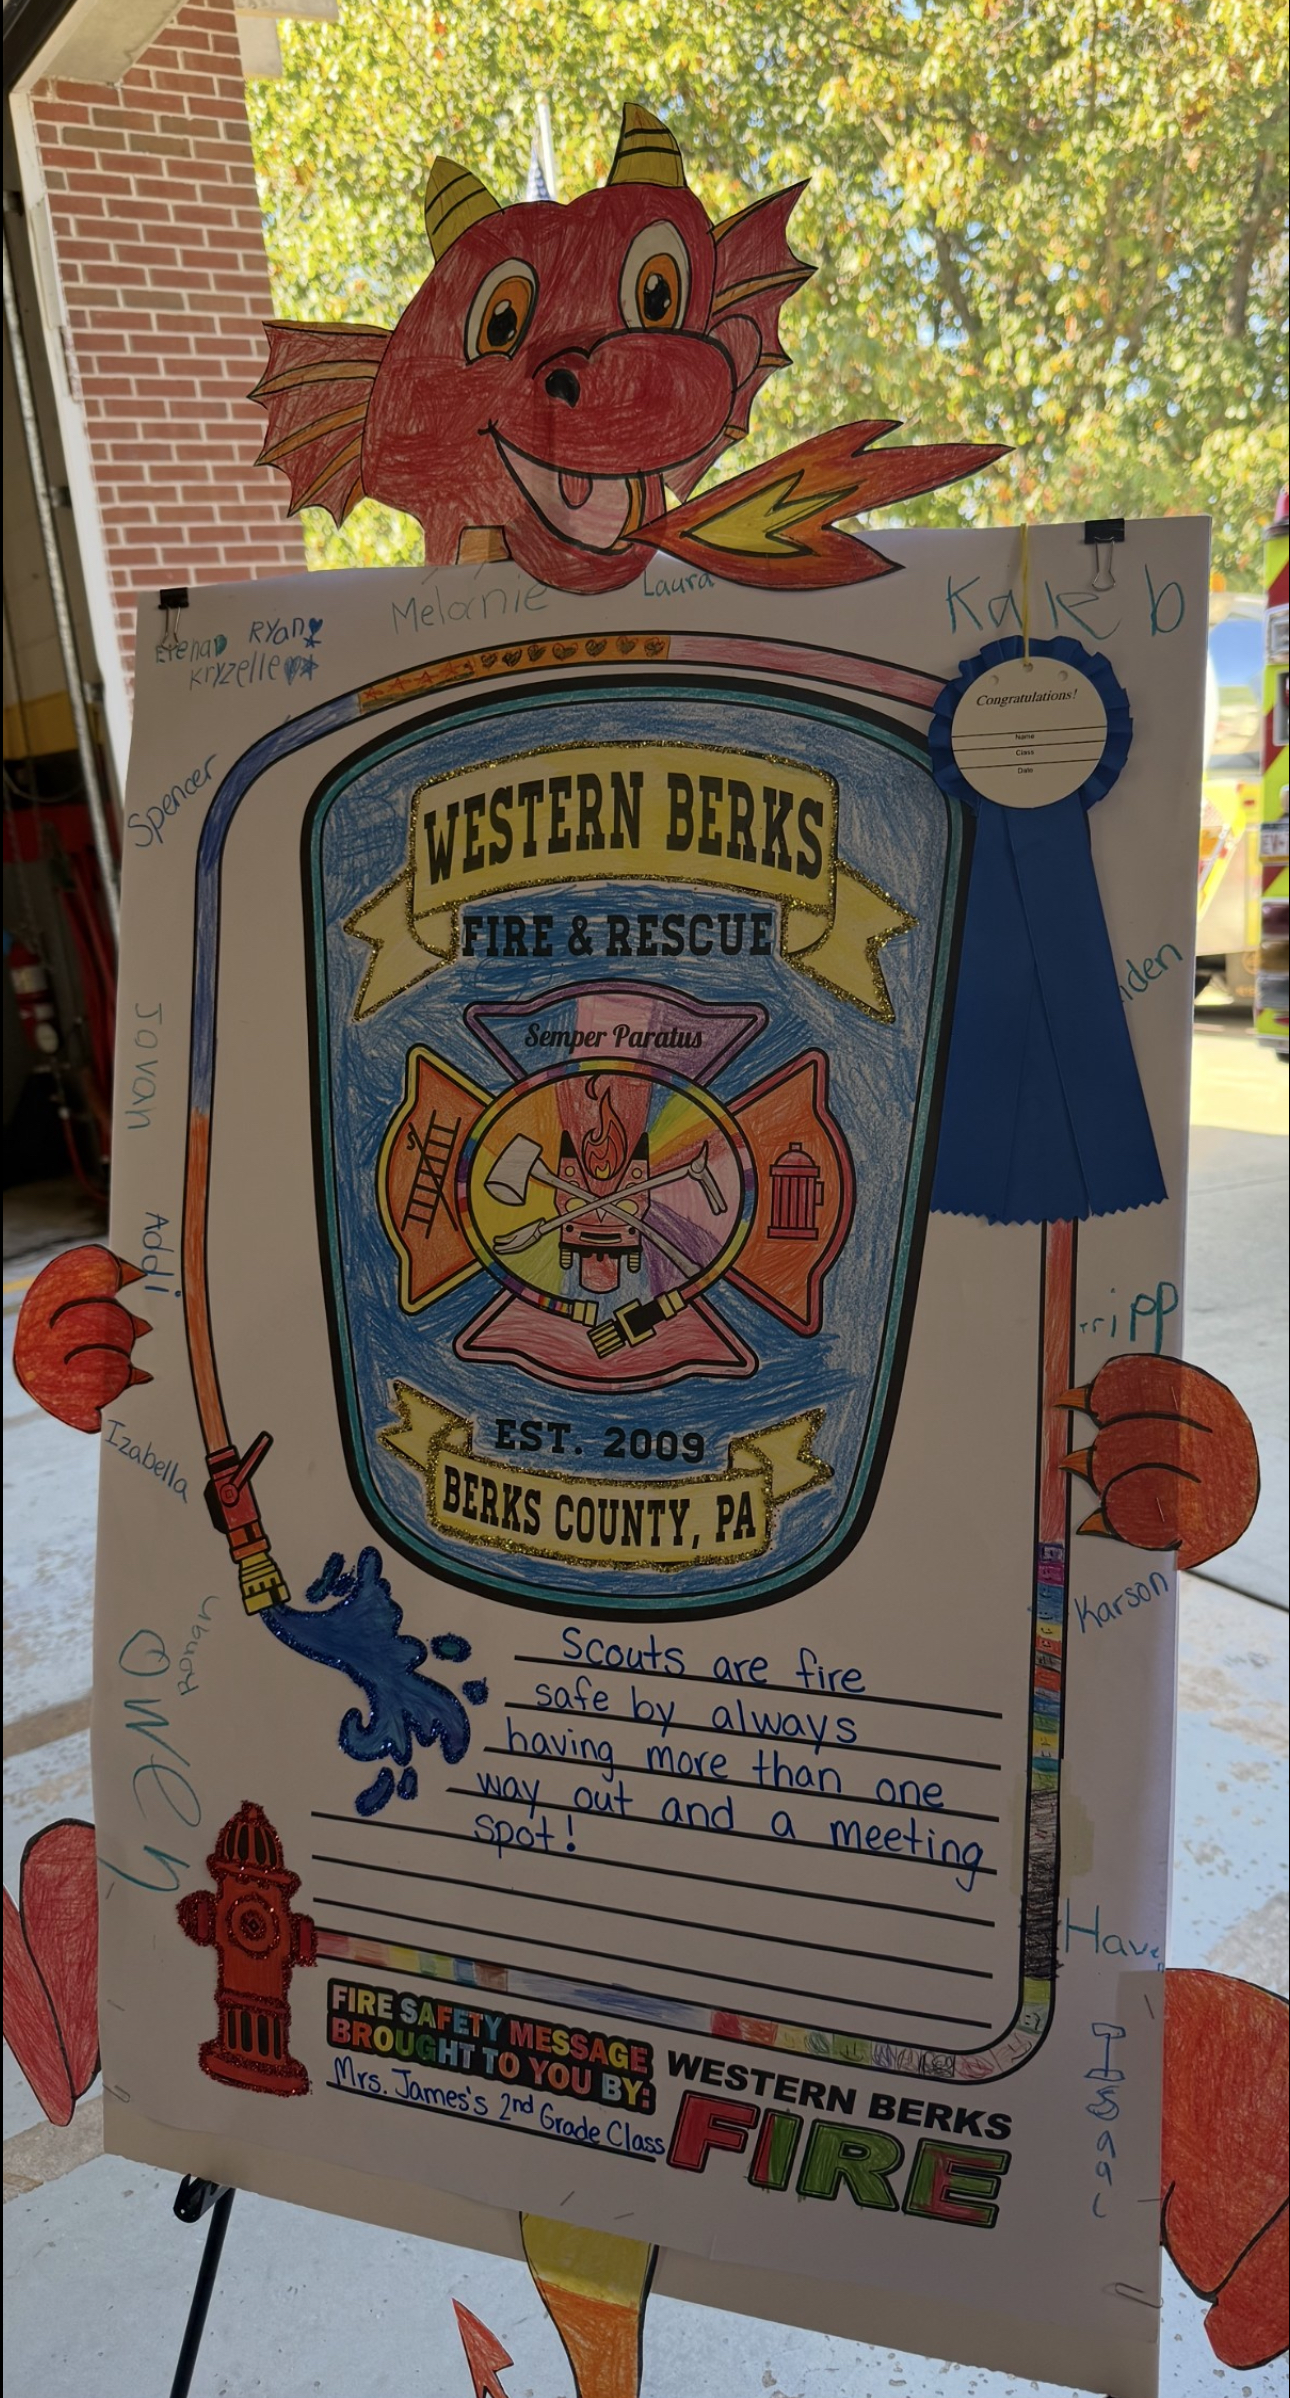 Melanie
Laura
Kaleb
Elena
RYan
Kryzelle
Congratulations!
Name
Class
Date
Spencer
WESTERN BERKS
FIRE & RESCUE
Semper Paratus
Jovan
Addi
Izabella
Karson
EST. 2009
BERKS COUNTY, PA
Ronan
Owen
Scouts are fire
safe by always
having more than one
way out and a meeting
spot!
Isaac
FIRE SAFETY MESSAGE
BROUGHT TO YOU BY:
Mrs. James's 2nd Grade Class
WESTERN BERKS
FIRE